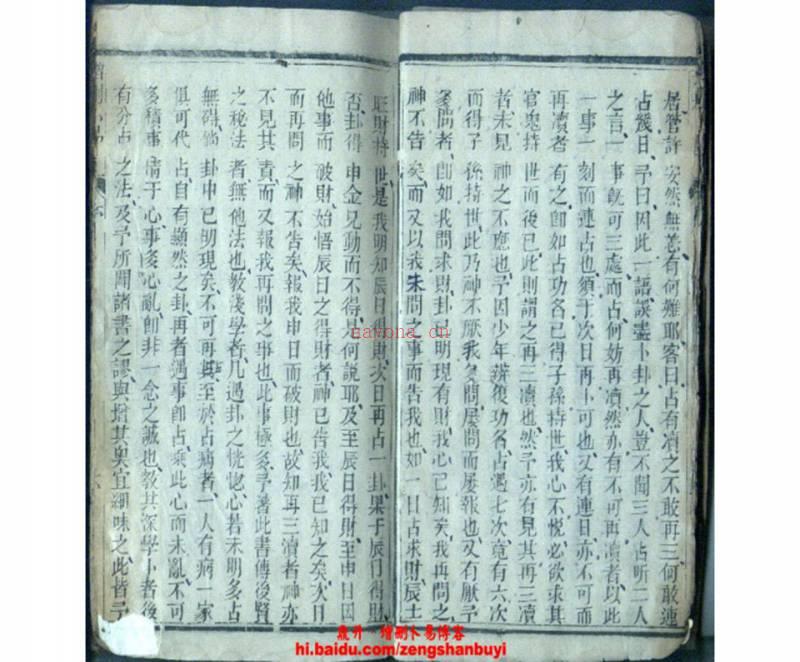 居管許安然無恙有何難耶客曰占有凟之不敢再三何敢連
占幾日予曰因此一語誤盡卜卦之人豈不聞三人占聽二人
之言一事旣可三處而占何妨再凟然亦有不可再凟者以此
一事一刻而連占也須于次日再卜可也又有連日亦不可而
再凟者有之卽如占功名已得子孫持世我心不悅必欲求其
官鬼持世而後已此則謂之再三凟也然予亦有見其再三凟
者未見神之不應也予因少年辨復功名占過七次竟有六次
而得子孫持世此乃神不厭我多問屢問而屢報也又有厭予
多問者卽如我問求財卦已明現有財我心已知矣我再問之
神不告矣而又以我未問之事而告我也如一日占求財辰土
旺財持世是我明知辰日得財次日再占一卦果于辰日得財
否卦得申金兄動而不得是何說耶及至辰日得財至申日因
他事而破財始悟辰日之得財者神已告我我已知之矣次日
而再問之神不告矣報我申日而破財也故知再三凟者神亦
不見其責而又報我再問之事也此事極多予著此書傳後賢
之秘法者無他法也敎淺學者凡遇卦之恍惚心若未明多占
無碍倘卦中已明現矣不可再凟至於占病者一人有病一家
俱可代占自有顯然之卦再者遇事卽占乘此心而未亂不可
多積事情于心事多心亂卽非一念之誠也敎其深學卜者後
有分占之法及予所闢諸書之謬與增其奥宜細味之此皆予
navona.cn
鼎升·增刪卜易博客
hi.baidu.com/zengshanbuyi